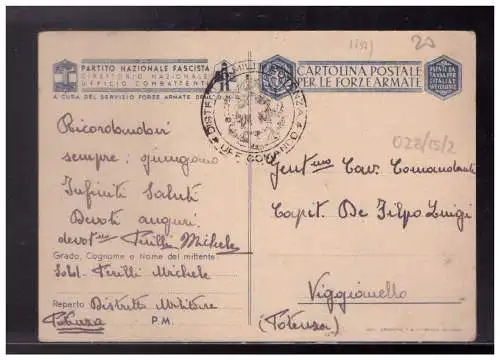 PARTITO NAZIONALE FASCISTA
DIRETTORIO NAZIONALE
UFFICIO COMBATTENTI
A CURA DEL SERVIZIO FORZE ARMATE DEL
CARTOLINA POSTALE
PER LE FORZE ARMATE
ESENTE DA
TASSA PER
L'ITALIA E
20
022/15/2
Ricordandovi
sempre: giungano
Infiniti Saluti
Devoti auguri.
Michele
Grado, Cognome e Nome del mittente
Sold. Michele
Reparto Distretto Militare
Potenza P.M.
Gent.mo Cav. Comandante
Capit. De Filpo Luigi
Viggianello
(Potenza)